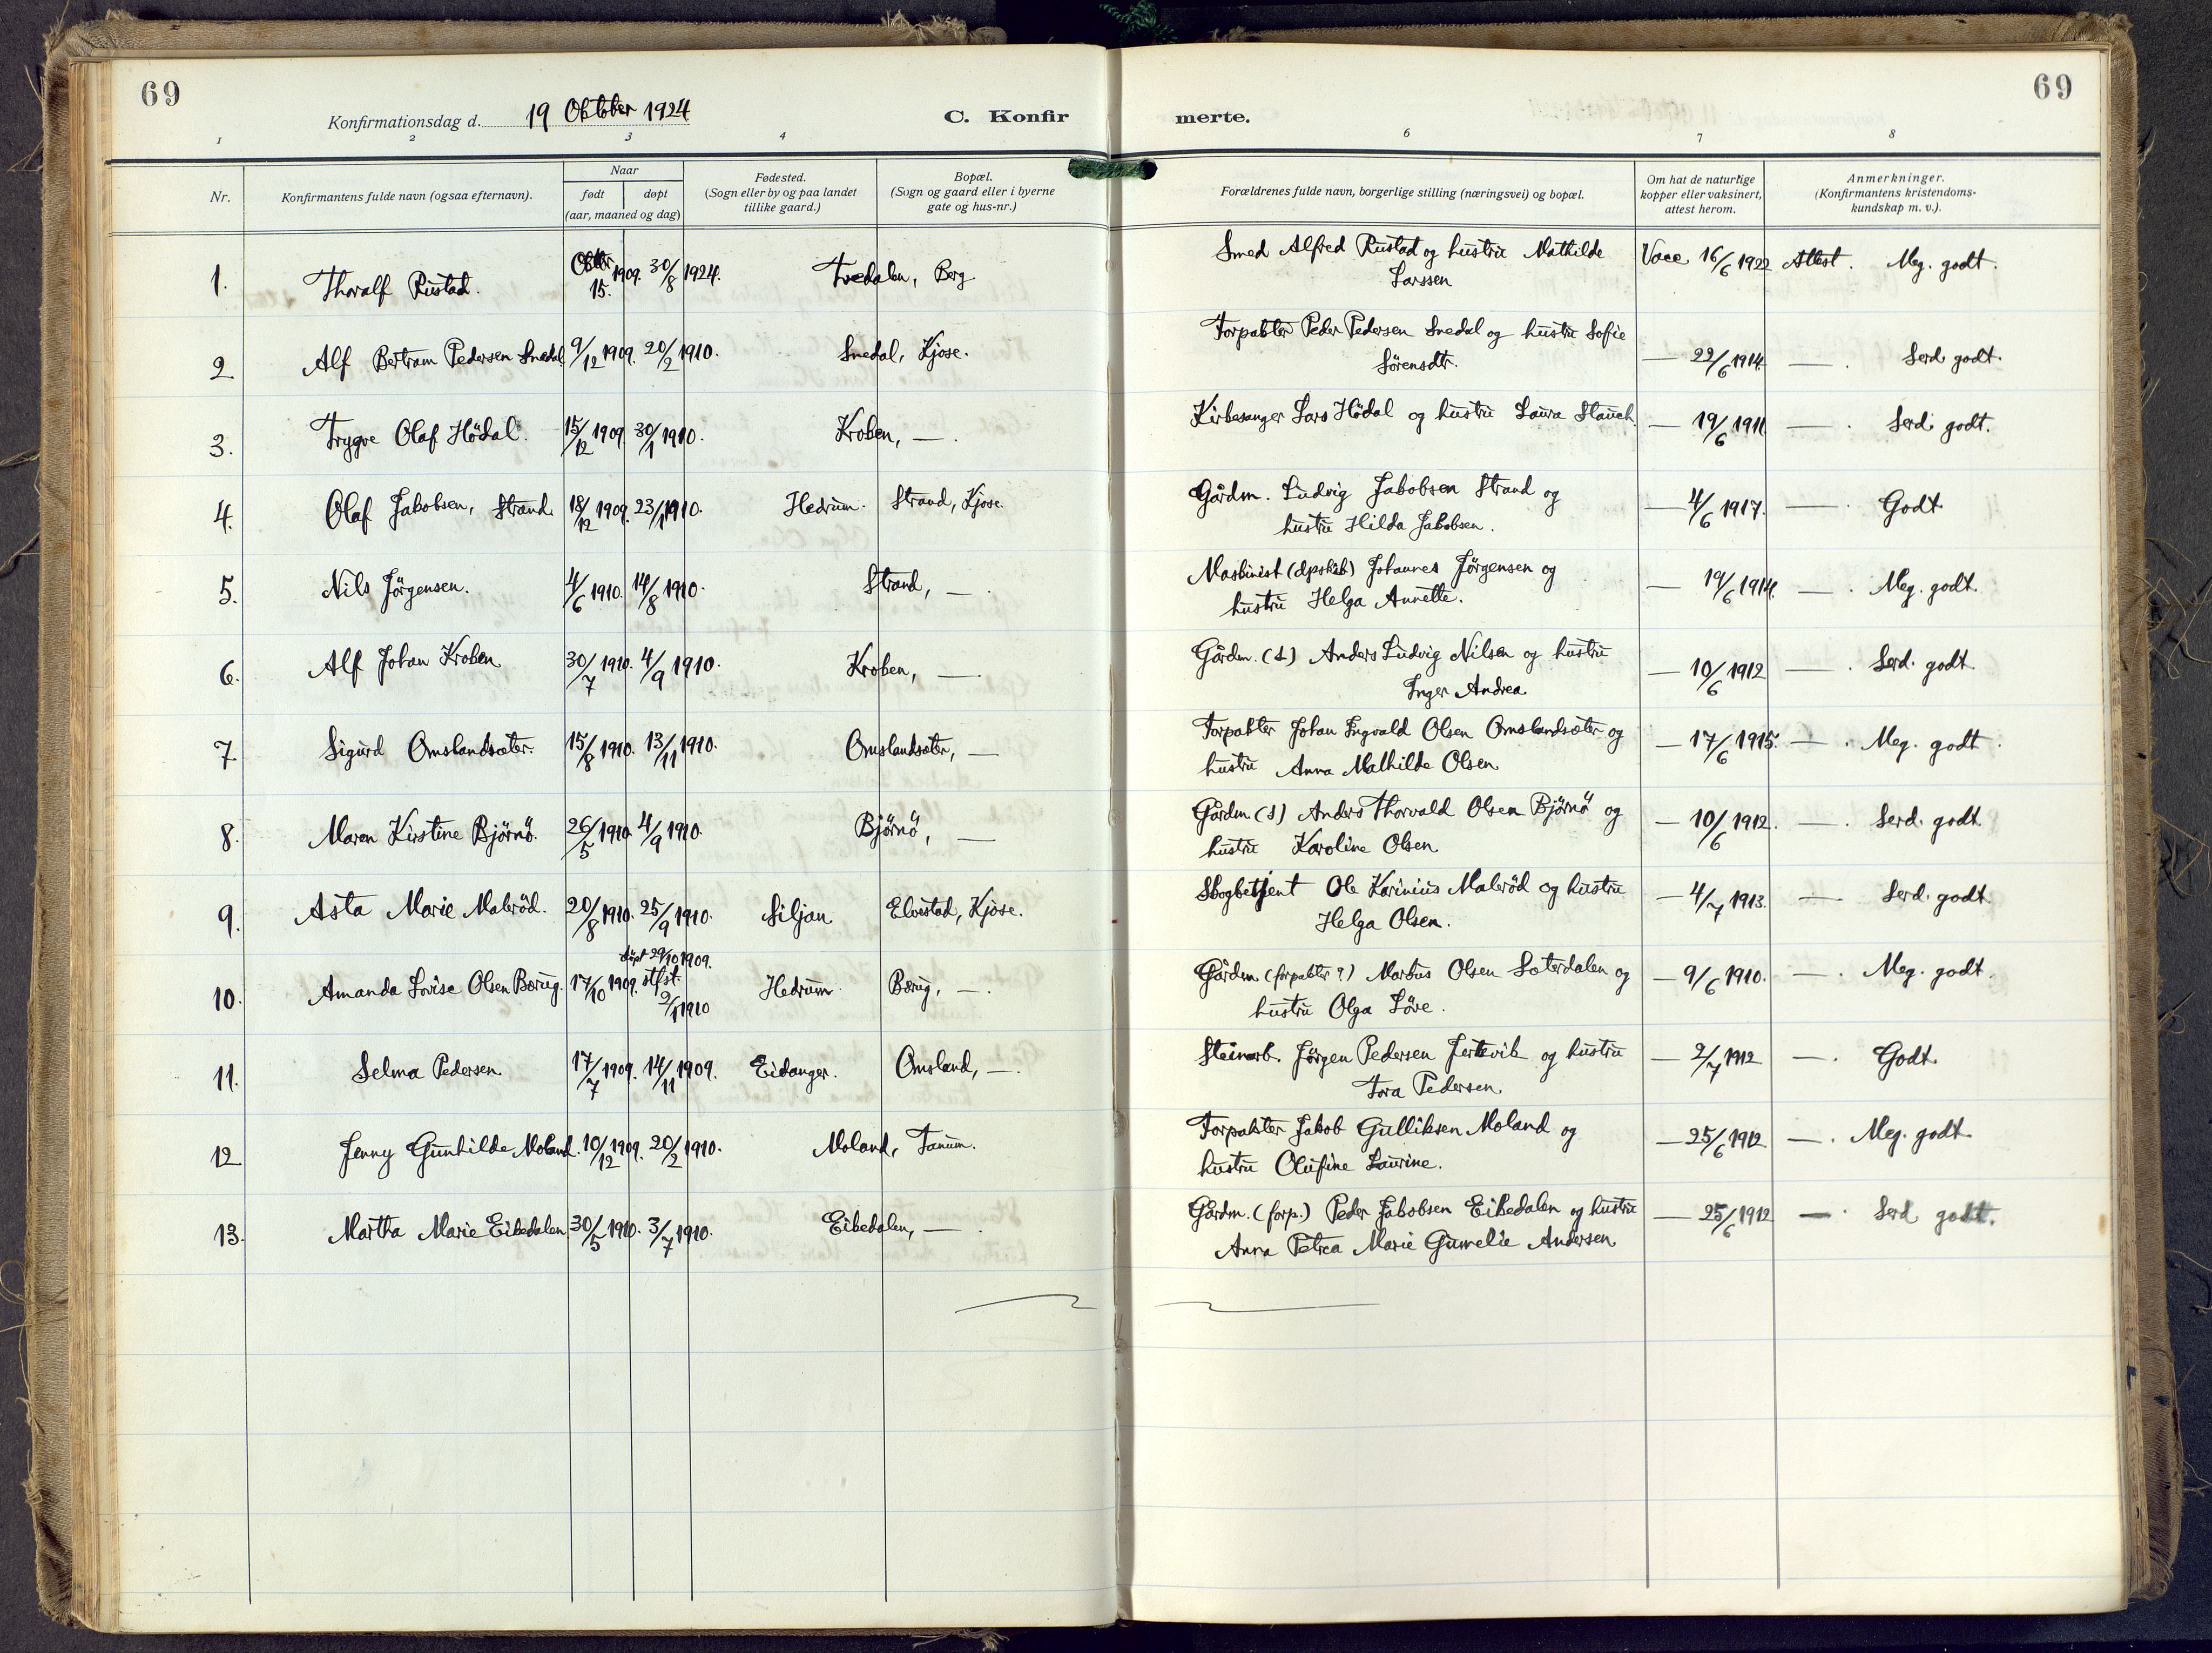 69
69
Konfirmationsdag d. 19 Oktober 1924
C. Konfir merte.
1 2 3 4 6 7 8
Nr. Konfirmantens fulde navn (ogsaa efternavn). Naar født døpt (aar, maaned og dag) Fødested. (Sogn eller by og paa landet tillike gaard.) Bopæl. (Sogn og gaard eller i byerne gate og hus-nr.) Forældrenes fulde navn, borgerlige stilling (næringsvei) og bopæl. Om hat de naturlige kopper eller vaksinert, attest herom. Anmerkninger. (Konfirmantens kristendoms-kundskap m. v.).
1. Thoralf Rustad. Oktbr. 15. 1909. 30/8 1924. Tvedalen, Berg Smed Alfred Rustad og hustru Mathilde Larssen Vacc 16/6 1922 Attest. Meg. godt.
2 Alf Bertram Pedersen Snedal 9/12 1909. 20/2 1910. Snedal, Kjose. Forpakter Peder Pedersen Snedal og hustru Sofie Sörensdtr. — 22/6 1914. — . Serd. godt.
3. Trygve Olaf Hödal. 15/12 1909. 30/1 1910. Kroken, — . Kirkesanger Lars Hödal og hustru Laura Stauch. — 19/6 1911. — . Serd. godt.
4. Olaf Jakobsen, Strand. 18/12 1909. 23/1 1910. Hedrum. Strand, Kjose. Gårdm. Ludvig Jakobsen Strand og hustru Hilda Jakobsen. — 4/6 1917. — . Godt.
5. Nils Jörgensen. 4/6 1910. 14/8 1910. Strand, — . Maskinist (dpskib) Johannes Jörgensen og hustru Helga Annette. — 19/6 1914. — . Meg. godt.
6. Alf Johan Kroken 30/7 1910. 4/9 1910. Kroken, — Gårdm. (s) Anders Ludvig Nilsen og hustru Inger Andrea. — 10/6 1912 — . Serd. godt.
7. Sigurd Omslandsæter. 15/8 1910. 13/11 1910. Omslandsæter, — Forpakter Johan Ingvald Olsen Omslandsæter og hustru Anna Mathilde Olsen. — 17/6 1915. — . Meg. godt.
8. Maren Kirstine Björnö. 26/5 1910. 4/9 1910. Björnö, — Gårdm. (s) Anders Thorvald Olsen Björnö og hustru Karoline Olsen. — 10/6 1912. — . Serd. godt.
9. Asta Marie Maleröd. 20/8 1910. 25/9 1910. Siljan Elvestad, Kjose. Skogbetjent Ole Karinius Maleröd og hustru Helga Olsen. — 4/7 1913. — Serd. godt.
10. Amanda Lovise Olsen Bærug. 17/10 1909. döpt 29/10 1909. stfst. 2/1 1910 Hedrum. Bærug, — . Gårdm. (forpakter?) Markus Olsen Sæterdalen og hustru Olga Löve. — 9/6 1910. — . Meg. godt.
11. Selma Pedersen 17/7 1909. 14/11 1909. Eidanger. Omsland, — . Steinarb. Jörgen Pedersen Jertevik og hustru Tora Pedersen. — 2/7 1912 — . Godt.
12 Jenny Gunhilde Moland. 10/12 1909. 20/2 1910. Moland, Tanum. Forpakter Jakob Gulliksen Moland og hustru Olufine Laurine. — 25/6 1912 — . Meg. godt.
13. Martha Marie Eikedalen 30/5 1910. 3/7 1910. Eikedalen, — . Gårdm. (forp.) Peder Jakobsen Eikedalen og hustru Anna Petrea Marie Gumelie Andersen. — 25/6 1912 — . Serd. godt.